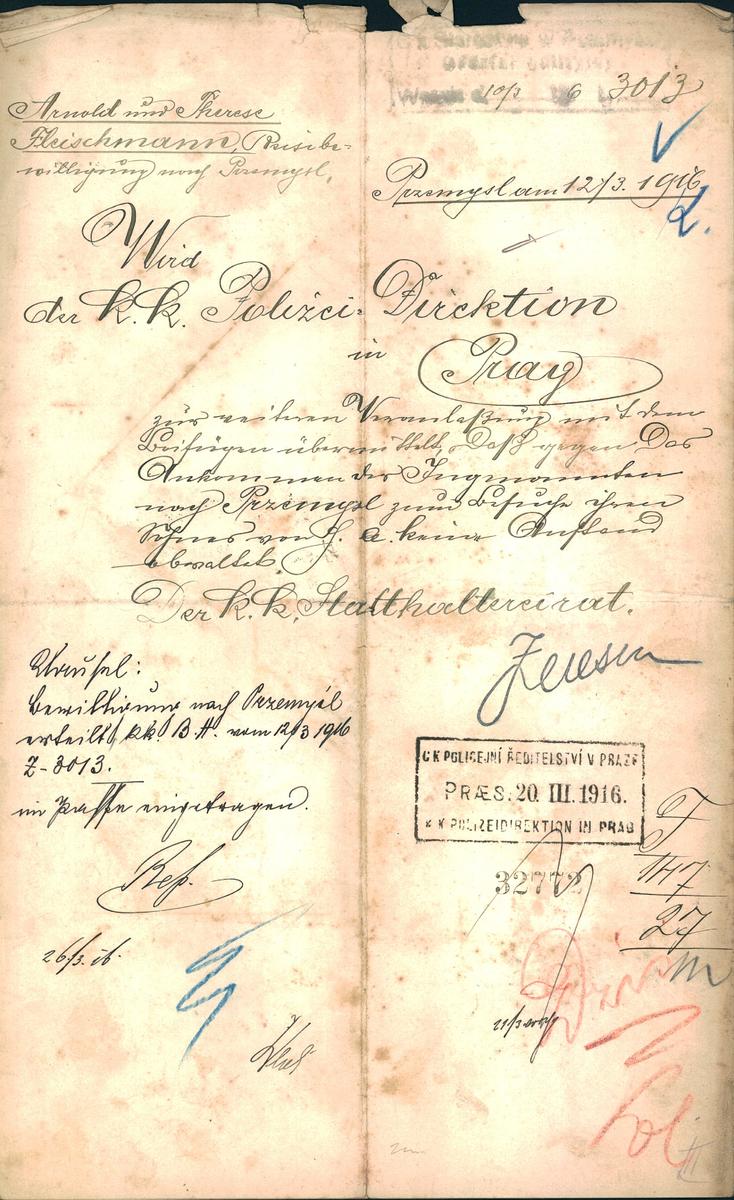 10/3 6 3013
Arnold und Therese
Fleischmann, Reisebe-
willigung nach Przemysl.
Przemysl am 12/3. 1916
Wird
der k. k. Polizei-Direktion
in
Prag
zur weiteren Veranlaßung mit dem
Beifügen übermittelt, daß gegen das
Ankommen der Ingenannten
nach Przemysl zum Besuche ihres
Sohnes von h. a. kein Anstand
obwaltet.
Der k. k. Statthaltereirat.
Bewilligung nach Przemysl
erteilt kk. B H. vom 12/3 1916
Z-3013.
im Passe eingetragen.
Ref.
26/3. 16.
C K POLICEJNÍ ŘEDITELSTVÍ V PRAZE
PRÆS. 20. III. 1916.
K K POLIZEIDIREKTION IN PRAG
32772
27